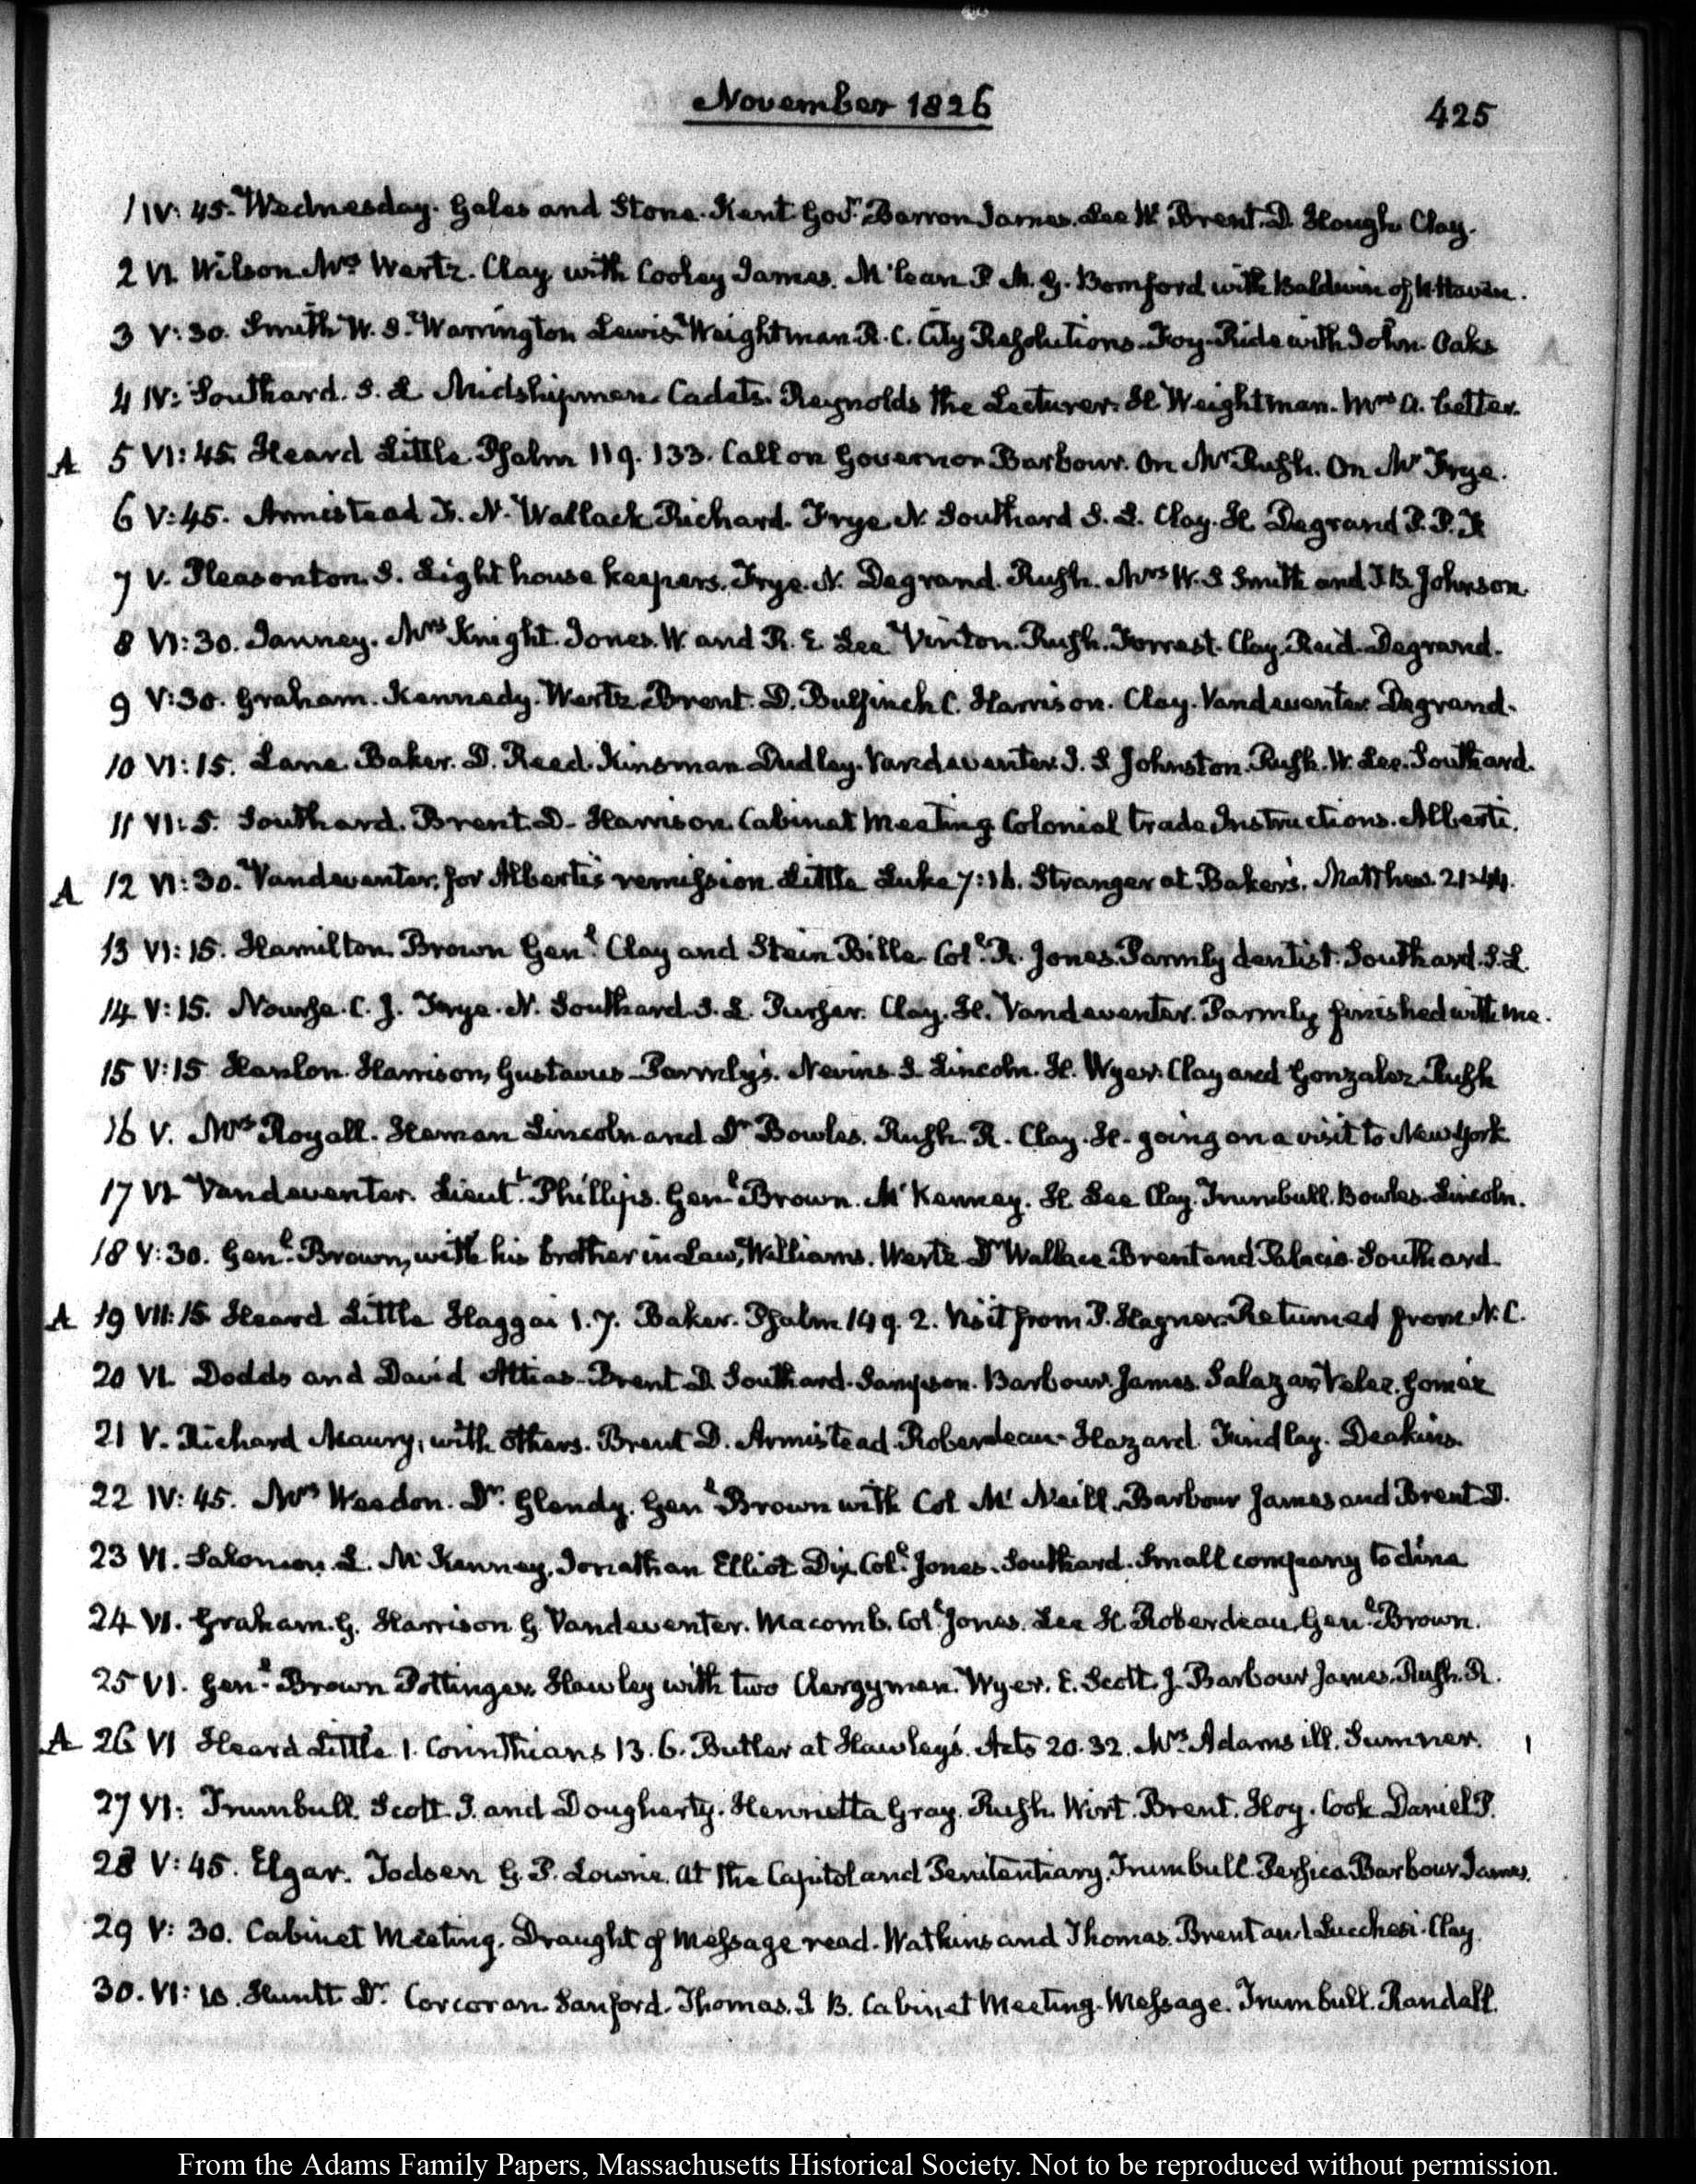 November 1826
425
1 IV: 45. Wednesday. Gales and Stone. Kent Govr. Barron James. Lee W. Brent. D. Hough. Clay.
2 VI. Wilson Mrs Wertz. Clay with Cooley James. McLean P. M. G. Bomford with Baldwin of N. Haven.
3 V: 30. Smith W. S. Warrington Lewis. Weightman. R. C. City Resolutions. Foy. Ride with John. Oaks
4 IV: Southard. S. L. Midshipmen. Cadets. Reynolds the Lecturer. H. Weightman. Mrs A. better.
A 5 VI: 45. Heard Little. Psalm 119. 133. Call on Governor Barbour. On Mr Rush. On Mr Frye.
6 V: 45. Armistead F. N. Wallack Richard. Frye. N. Southard S. L. Clay. H. Degrand P. P. F.
7 V. Pleasonton. S. Light house keepers. Frye. N. Degrand. Rush. Mrs W. S Smith and J. B. Johnson.
8 VI: 30. Janney. Mrs Knight. Jones. W. and R. E. Lee. Vinton. Rush. Forrest. Clay. Reid. Degrand.
9 V: 30. Graham. Kennedy. Wertz. Brent. D. Bulfinch C. Harrison. Clay. Vandeventer. Degrand.
10 VI: 15. Lane. Baker. D. Reed. Kinsman Dudley. Vandeventer. J. S Johnston. Rush. W. Lee. Southard.
11 VI: 5. Southard. Brent. D. Harrison. Cabinet Meeting Colonial trade Instructions. Alberti.
A 12 VI: 30. Vandeventer, for Alberti's remission Little Luke 7: 16. Stranger at Baker's. Matthew. 21. 44.
13 VI: 15. Hamilton. Brown Genl. Clay and Stein Bille. Coll. R. Jones. Parmly dentist. Southard. S. L.
14 V: 15. Nourse. C. J. Frye. N. Southard. S. L. Purser. Clay. H. Vandeventer. Parmly finished with me.
15 V: 15 Hanlon. Harrison, Gustavus. Parmly's. Nevins. S. Lincoln. H. Wyer. Clay and Gonzalez. Rush
16 V. Mrs Royall. Heman Lincoln and Dr Bowles. Rush. R. Clay. H. going on a visit to New York
17 VI. Vandeventer. Lieutt. Phillips. Genl. Brown. McKenney. H. Lee Clay. Trumbull. Bowles. Lincoln.
18 V: 30. Genl. Brown, with his brother in Law, Williams. Wertz. Dr Wallace. Brent and Palacio. Southard.
A 19 VII: 15. Heard Little Haggai 1. 7. Baker. Psalm 149. 2. Visit from P. Hagner. Returned from N. C.
20 VI. Dodds and David Attias. Brent D. Southard. Sampson. Barbour. James. Salazar, Velez. Gomez
21 V. Richard Maury, with others. Brent D. Armistead. Roberdeau. Hazard. Findlay. Deakins.
22 IV: 45. Mrs Weedon. Dr. Glendy. Genl Brown with Col Mc Neill. Barbour James and Brent D.
23 VI. Salomon. L. McKenney. Jonathan Elliot Dix. Coll. Jones. Southard. Small company to dine
24 VI. Graham. G. Harrison G. Vandeventer. Macomb. Coll. Jones. Lee H. Roberdeau. Genl. Brown.
25 VI. Genl. Brown Pottinger. Hawley with two Clergymen. Wyer. E. Scott. J. Barbour James. Rush. R.
A 26 VI Heard Little 1. Corinthians 13. 6. Butler at Hawley's. Acts 20. 32. Mrs. Adams ill. Sumner.
27 VI: Trumbull. Scott. J. and Dougherty. Henrietta Gray. Rush. Wirt. Brent. Hoy. Cook Daniel P.
28 V: 45. Elgar. Todsen G. P. Lowrie. At the Capitol and Penitentiary. Trumbull. Persico. Barbour James.
29 V: 30. Cabinet Meeting. Draught of Message read. Watkins and Thomas. Brent and Lucchesi. Clay.
30. VI: 10. Huntt Dr. Corcoran. Sanford. Thomas. J B. Cabinet Meeting. Message. Trumbull. Randall.
From the Adams Family Papers, Massachusetts Historical Society. Not to be reproduced without permission.